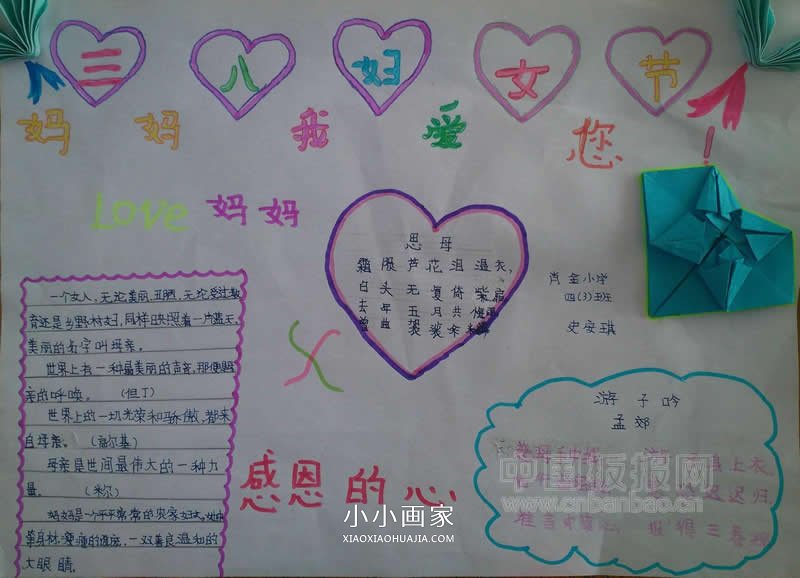 三八妇女节
妈妈我爱您!
Love 妈妈
思母
霜殒芦花泪湿衣,
白头无复倚柴扉
去年五月
曾典袈裟
肖金小学
四(3)班
史安琪
一个女人,无论美丽,丑陋,无论受过教
育还是乡野村妇,同样映照着一片蓝天,
美丽的名字叫母亲。
世界上有一种最美丽的声音,那便是母
亲的呼唤。 (但丁)
世界上的一切光荣和骄傲,都来
自母亲。 (高尔基)
母亲是世间最伟大的一种力
量。 (米尔)
妈妈是一个平平常常的农家妇女,
草身材,瘦瘦的 一双善良温和的
大眼睛。
感恩的心
游子吟
孟郊
上衣
迟迟归
谁言寸草心,报得三春晖
中国板报网
www.cnbanbao.cn
小小画家
XIAOXIAOHUAJIA.COM